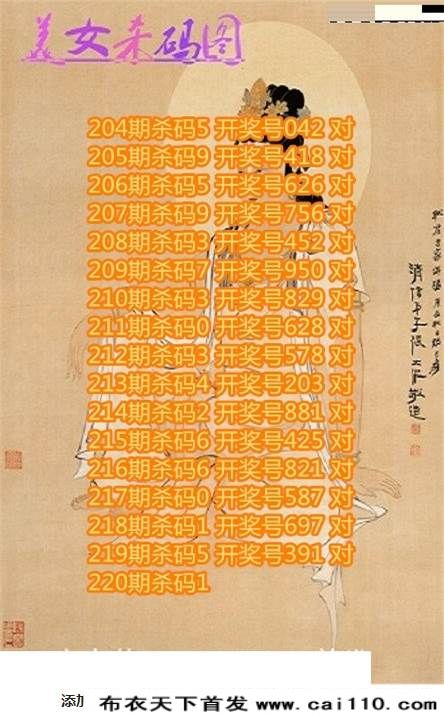 美女杀码图
204期杀码5 开奖号042 对
205期杀码9 开奖号418 对
206期杀码5 开奖号626 对
207期杀码9 开奖号756 对
208期杀码3 开奖号452 对
209期杀码7 开奖号950 对
210期杀码3 开奖号829 对
211期杀码0 开奖号628 对
212期杀码3 开奖号578 对
213期杀码4 开奖号203 对
214期杀码2 开奖号881 对
215期杀码6 开奖号425 对
216期杀码6 开奖号821 对
217期杀码0 开奖号587 对
218期杀码1 开奖号697 对
219期杀码5 开奖号391 对
220期杀码1
布衣天下首发 www.cai110.com